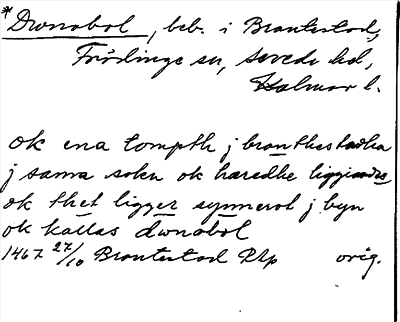 * Dwnabol, beb. i Brantestad,
Frödinge sn, Sevede hd,
Kalmar l.
ok ena tompth j branthestadha
j sama sokn ok hæredhe liggiandes
ok thet ligger synnerst j byn
ok kallas dwnabol
1467 27/10 Brantestad Prp orig.